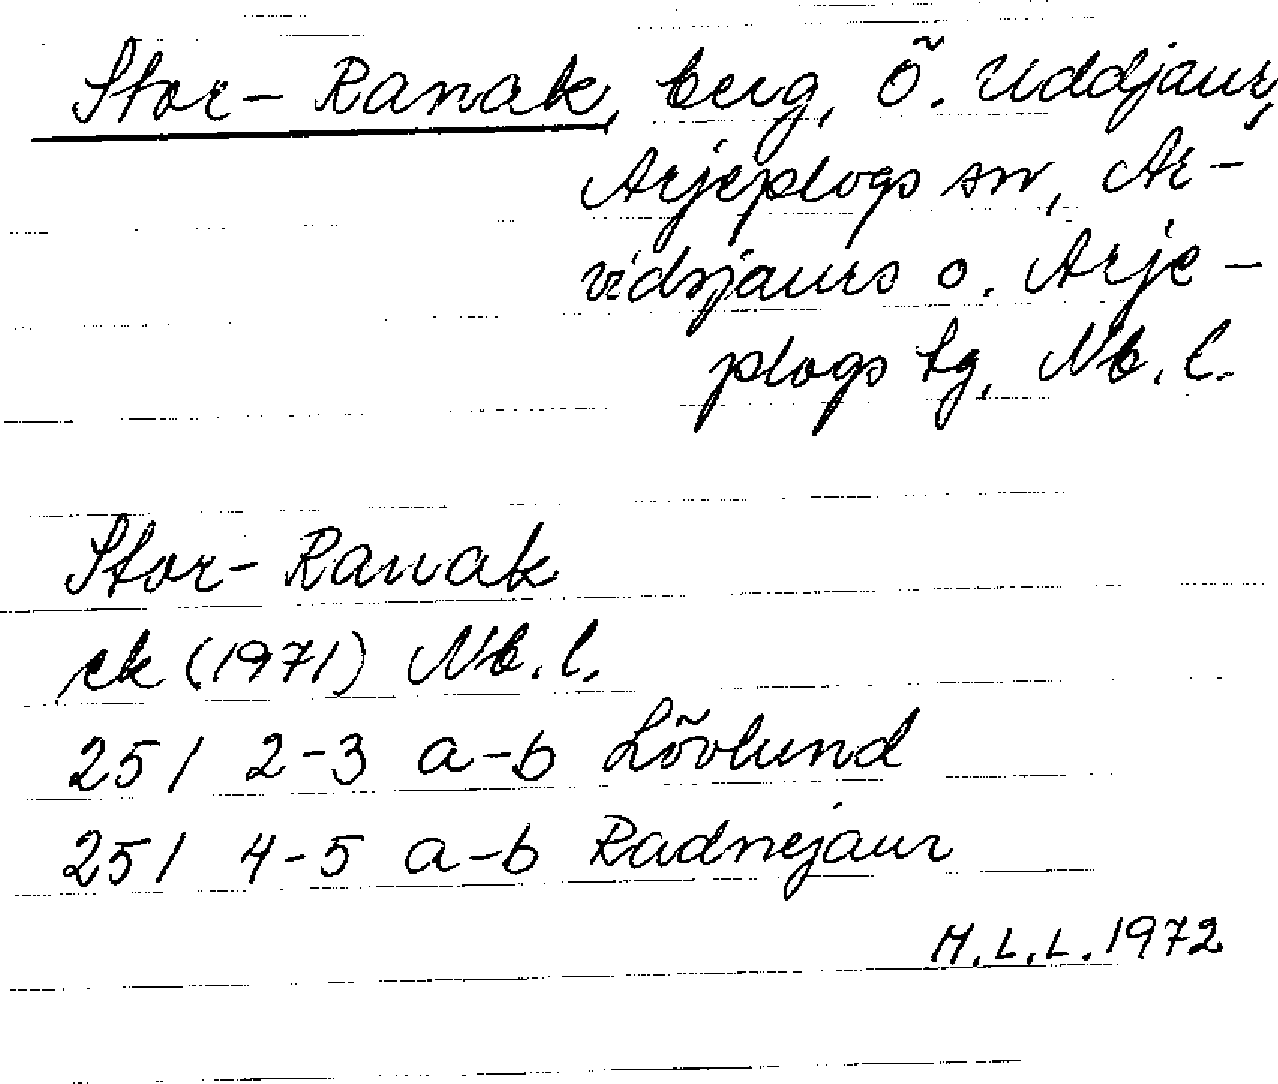 Stor-Ranak, berg, Ö. Uddjaur,
Arjeplogs sn, Ar-
vidsjaurs o. Arje-
plogs tg, Nb. l.
Stor-Ranak
ek (1971) Nb. l.
25 I 2-3 a-b Lövlund
25 I 4-5 a-b Radnejaur
M.L.L. 1972